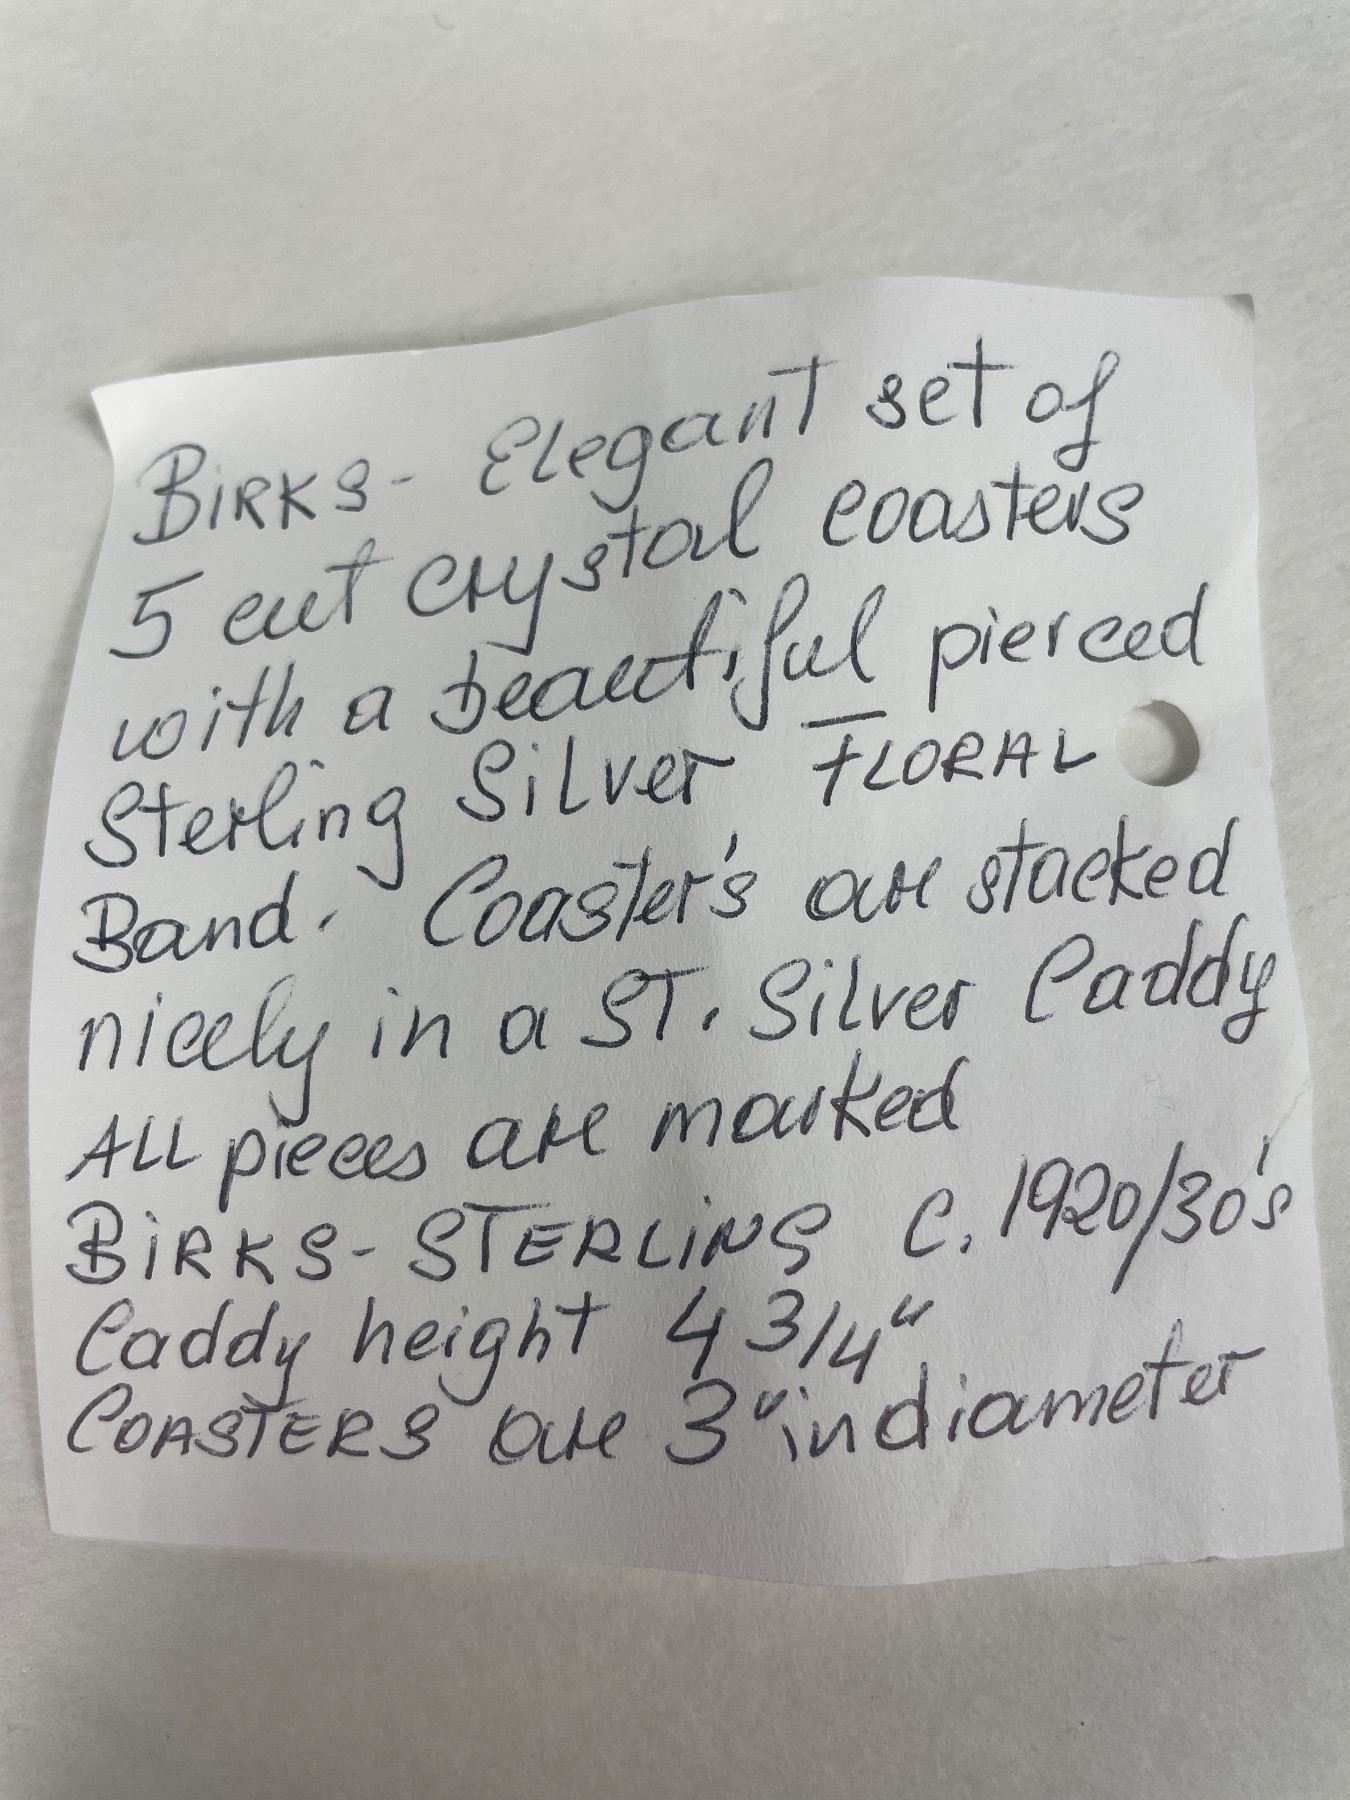 BIRKS - Elegant set of
5 cut crystal coasters
with a beautiful pierced
Sterling Silver FLORAL
Band. Coaster's are stacked
nicely in a ST. Silver Caddy
ALL pieces are marked
BIRKS - STERLING C. 1920/30's
Caddy height 4 3/4"
COASTERS are 3" in diameter